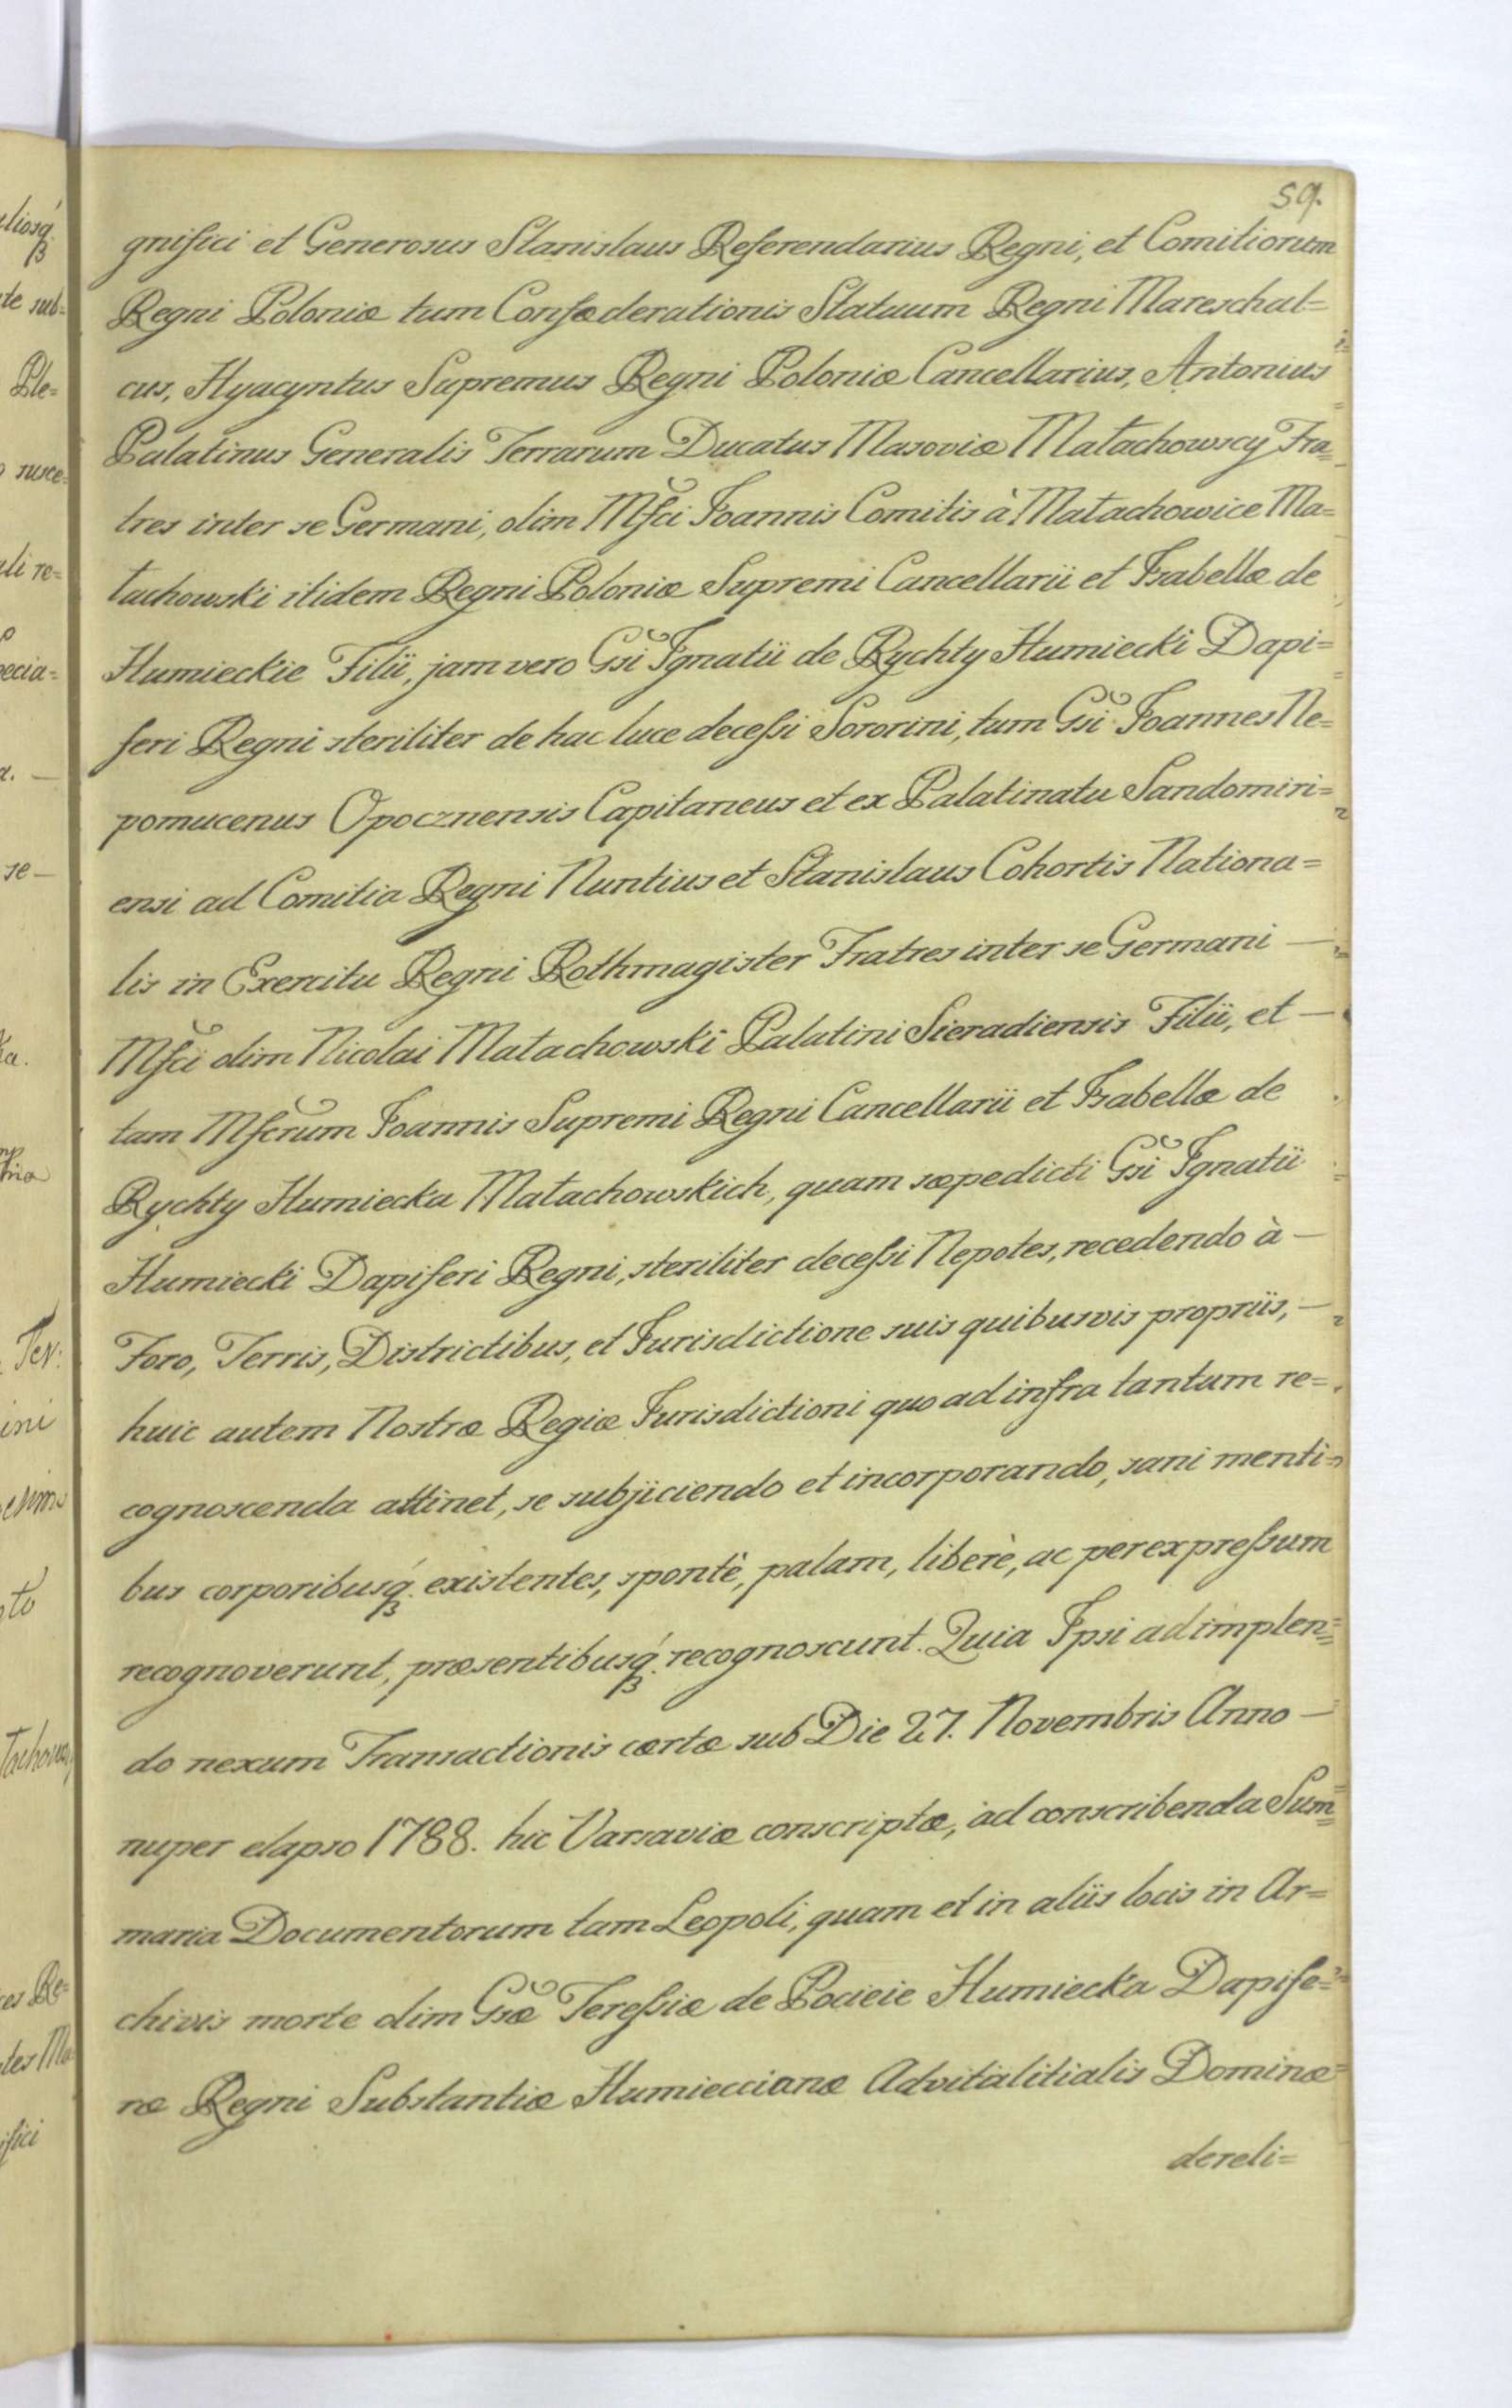 59.
gnifici et Generosus Stanislaus Referendarius Regni, et Comitiorum
Regni Poloniæ tum Confæderationis Statuum Regni Mareschal=
cus, Hyacyntus Supremus Regni Poloniæ Cancellarius, Antonius
Palatinus Generalis Terrarum Ducatus Masoviæ Małachowscy Fra=
tres inter se Germani, olim Mfci Joannis Comitis à Małachowice Ma=
łachowski itidem Regni Poloniæ Supremi Cancellarii et Isabellæ de
Humieckie Filii, jam vero Gsi Ignatii de Rychty Humiecki Dapi=
feri Regni steriliter de hac luce decessi Sororini, tum Gsi Joannes Ne=
pomucenus Opocznensis Capitaneus et ex Palatinatu Sandomiri=
ensi ad Comitia Regni Nuntius et Stanislaus Cohortis Nationa=
lis in Exercitu Regni Rothmagister Fratres inter se Germani —
Mfci olim Nicolai Małachowski Palatini Sieradiensis Filii, et —
tam Mfcrum Joannis Supremi Regni Cancellarii et Isabellæ de
Rychty Humiecka Małachowskich, quam sæpedicti Gsi Ignatii
Humiecki Dapiferi Regni, steriliter decessi Nepotes, recedendo à —
Foro, Terris, Districtibus, et Jurisdictione suis quibusvis propriis, —
huic autem Nostræ Regiæ Jurisdictioni quo ad infra tantum re=
cognoscenda attinet, se subjiciendo et incorporando, sani menti=
bus corporibusq́ȝ existentes, spontè, palam, liberè, ac per expressum
recognoverunt, præsentibusq́ȝ recognoscunt. Quia Ipsi adimplen=
do nexum Transactionis certæ sub Die 27. Novembris Anno —
nuper elapso 1788. hic Varsaviæ conscriptæ, ad conscribenda Sum=
maria Documentorum tam Leopoli, quam et in aliis locis in Ar=
chivis morte olim Gsæ Teressiæ de Pocieie Humiecka Dapife=
ræ Regni Substantiæ Humieccianæ Advitalitialis Dominæ
dereli=